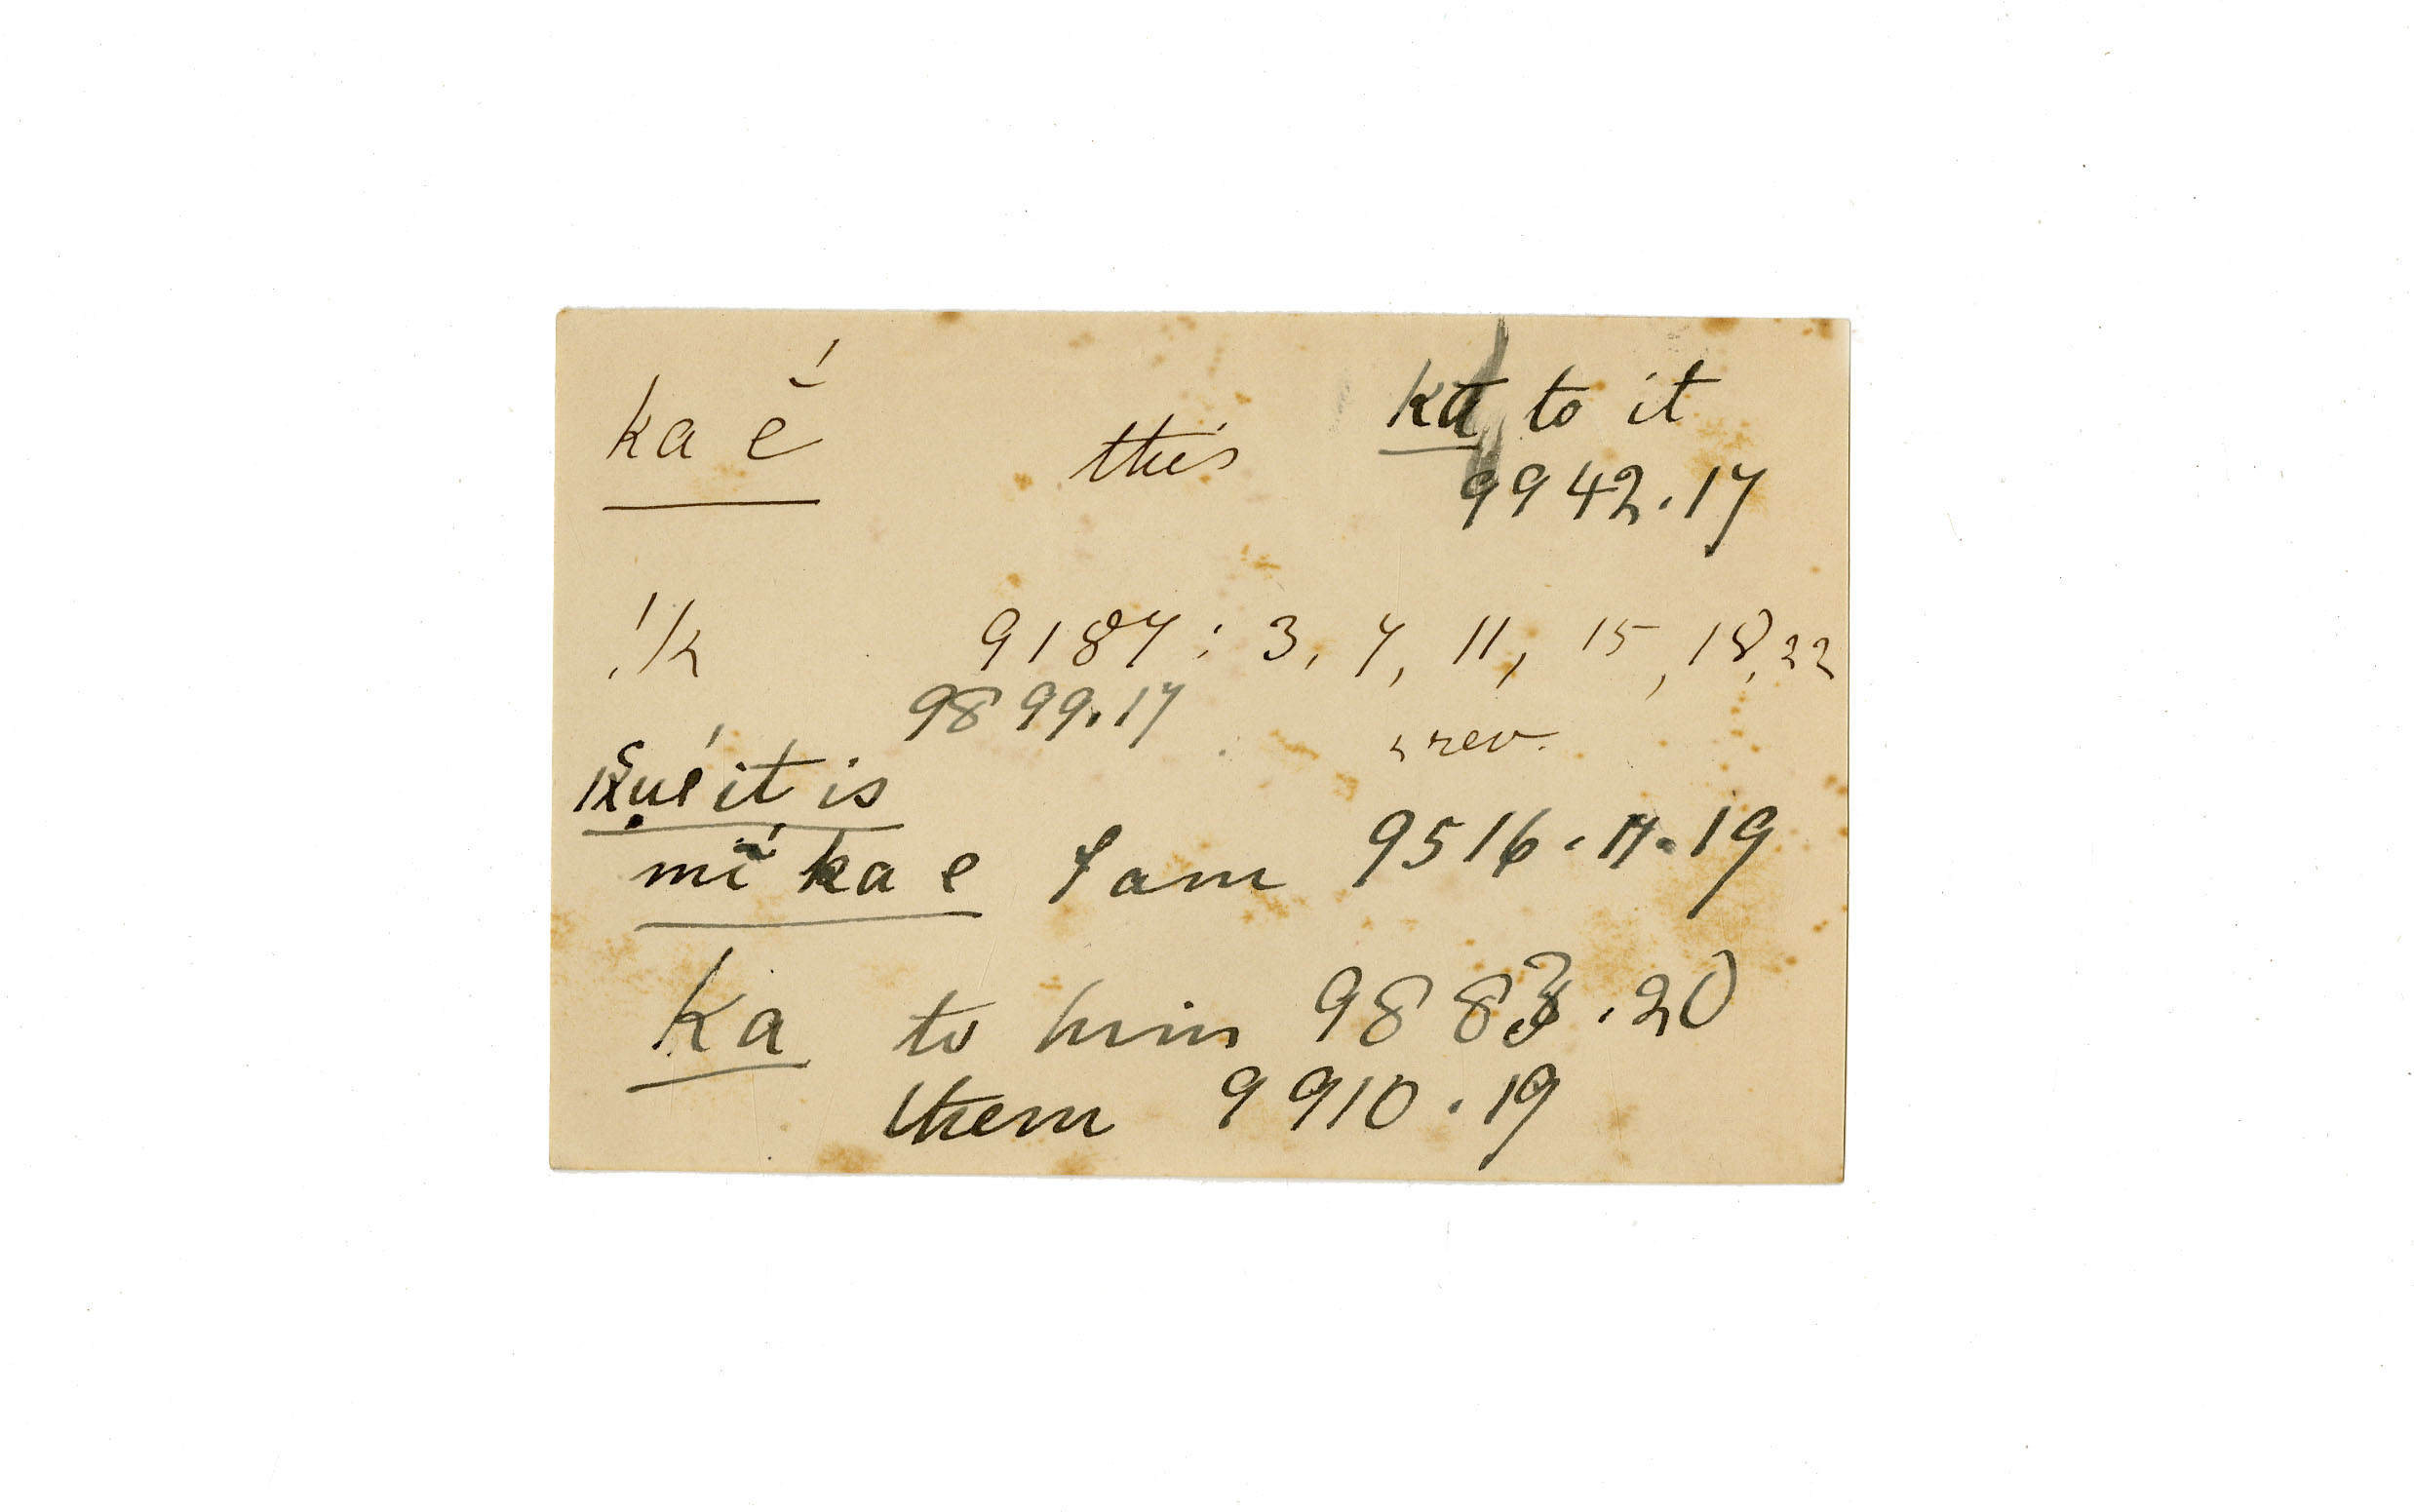 ka ĕ́ this ka to it
9942.17
!k 9187: 3, 7, 11, 15, 18, 22
9899.17
rev.
it is
mĭ́ ka e I am 9516.17.19
Ka to him 9883.20
them 9910.19